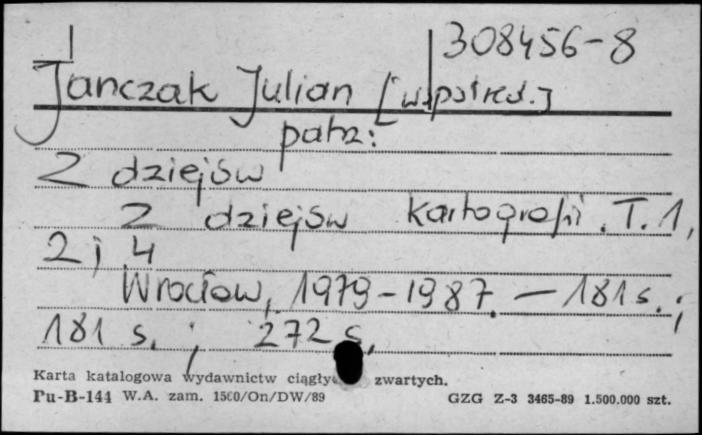 308456-8
Janczak Julian [współred.]
patz:
Z dziejów
Z dziejów kartografii. T. 1,
2 i 4
Wrocław, 1979-1987. - 181 s. ;
181 s. ; 272 s.
Karta katalogowa wydawnictw zwartych.
Pu-B-144 W.A. zam. 1500/On/DW/89 GZG Z-3 3465-89 1.500.000 szt.